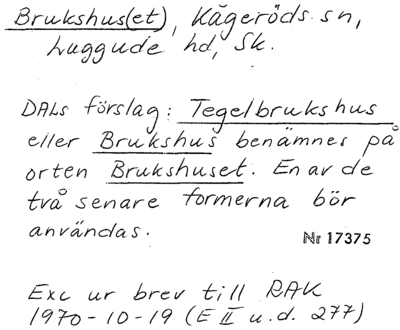 Brukshus(et), Kågeröds sn,
Luggude hd, Sk.
DALs förslag: Tegelbrukshus
eller Brukshus benämnes på
orten Brukshuset. En av de
två senare formerna bör
användas.
Nr 17375
Exc ur brev till RAK
1970-10-19 (E II u.d. 277)